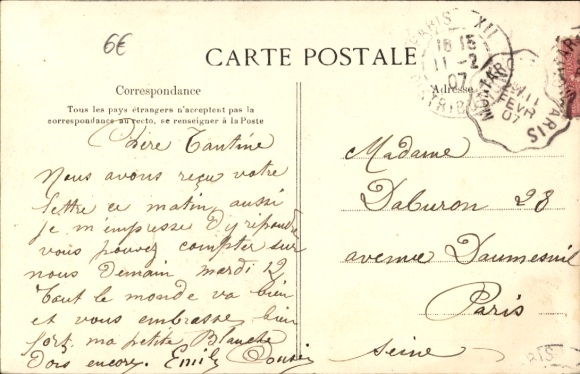 6€
CARTE POSTALE
Correspondance
Tous les pays étrangers n'acceptent pas la
correspondance au recto, se renseigner à la Poste
Adresse
PARIS XII
18 15
11 -2
07
DISTRIB
11
FEVR
07
PARIS
Chère Tantine
Nous avons reçu votre
lettre ce matin, aussi
je m'empresse d'y répondre
vous pouvez compter sur
nous Demain mardi 12
Tout le monde va bien
et vous embrasse bien
fort. ma petite Blanche
Dors encore. Emile
Madame
Daburon 28
avenue Daumesnil
Paris
Seine